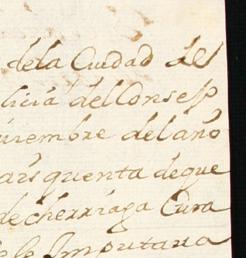 dela Ciudad de
licia del Consejo
uiembre del año
ais quenta de que
de cherriaga Cura
Imputaria